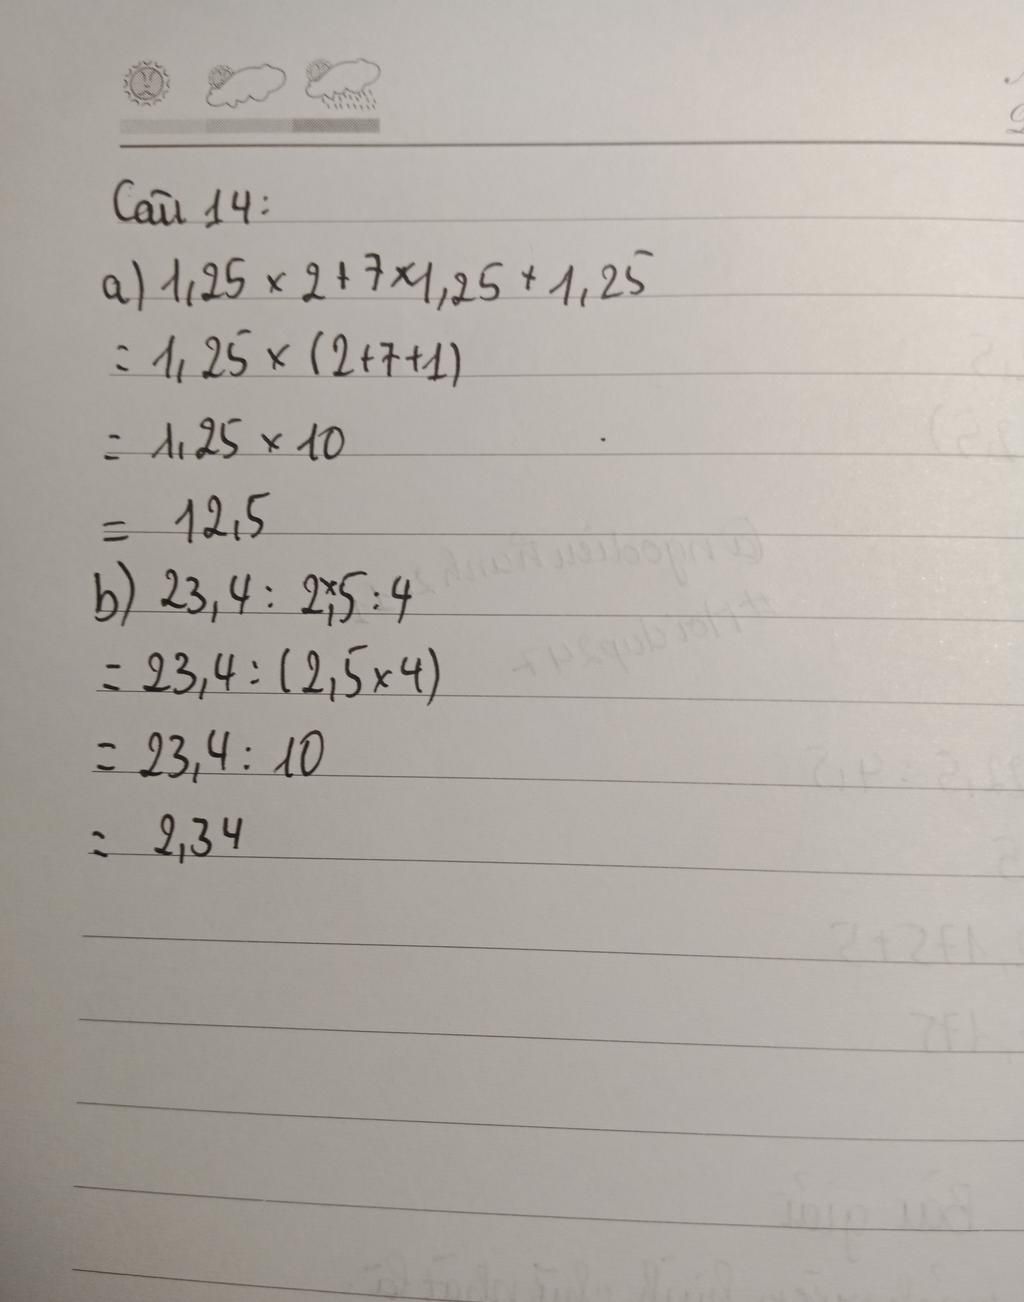 Câu 14:
a) 1,25 × 2 + 7 × 1,25 + 1,25
= 1,25 × (2+7+1)
= 1,25 × 10
= 12,5
b) 23,4 : 2,5 : 4
= 23,4 : (2,5 × 4)
= 23,4 : 10
= 2,34